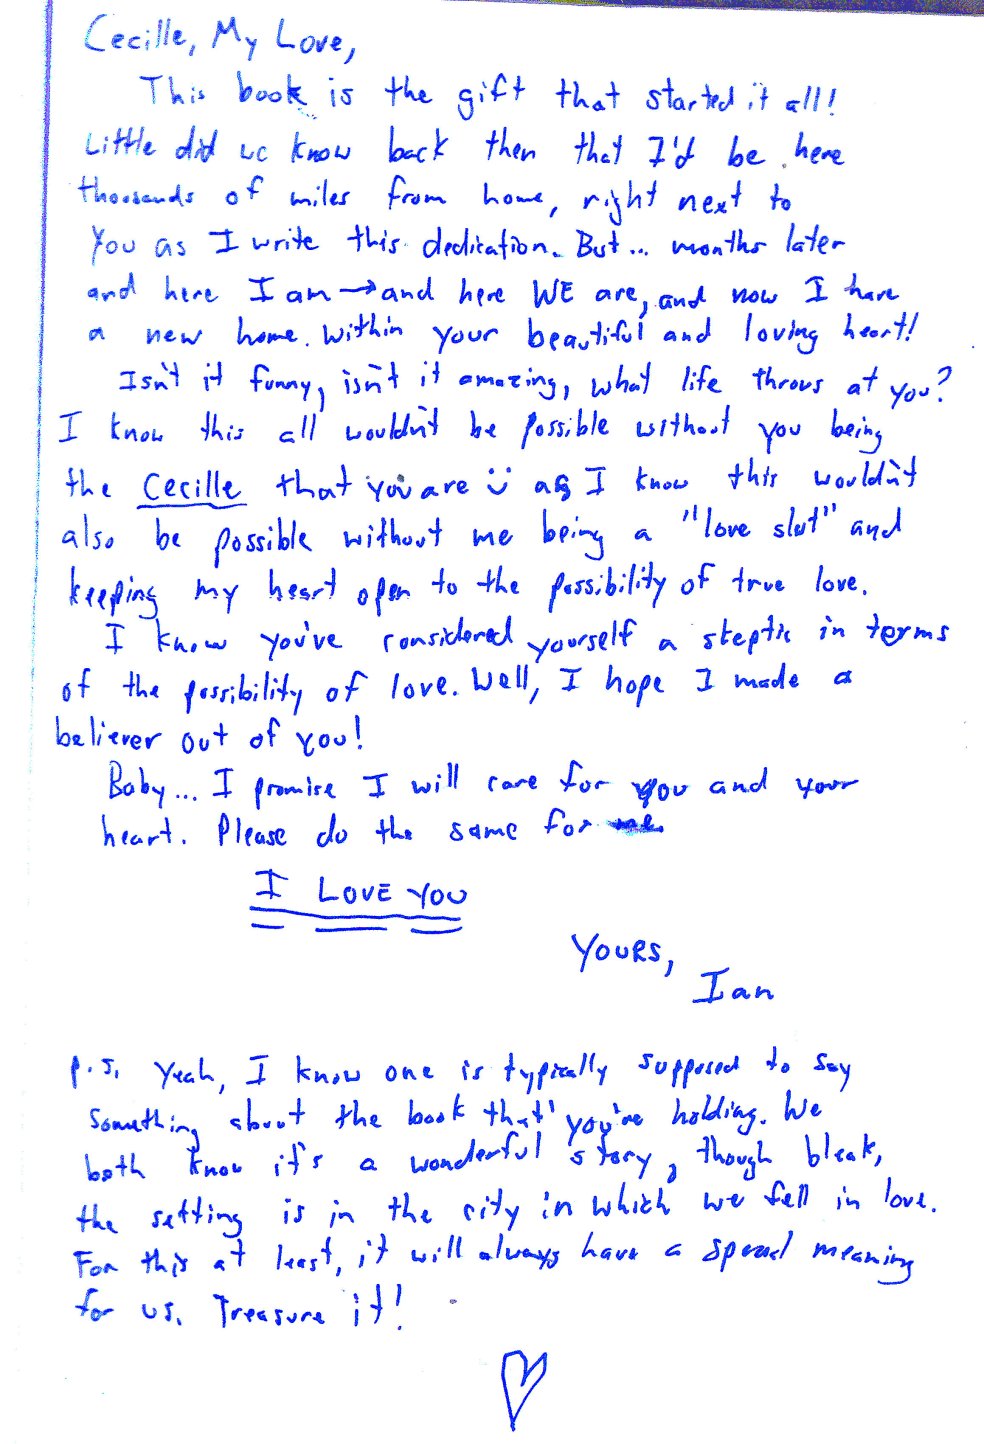 Cecille, My Love,
This book is the gift that started it all!
Little did we know back then that I'd be here
thousands of miles from home, right next to
you as I write this dedication. But... months later
and here I am → and here WE are, and now I have
a new home. Within your beautiful and loving heart!
Isn't it funny, isn't it amazing, what life throws at you?
I know this all wouldn't be possible without you being
the Cecille that you are ツ as I know this wouldn't
also be possible without me being a "love slut" and
keeping my heart open to the possibility of true love.
I know you've considered yourself a skeptic in terms
of the possibility of love. Well, I hope I made a
believer out of you!
Baby... I promise I will care for you and your
heart. Please do the same for me.
I LOVE YOU
YOURS,
Ian
p.s. Yeah, I know one is typically supposed to say
something about the book that you're holding. We
both know it's a wonderful story, though bleak,
the setting is in the city in which we fell in love.
For this at least, it will always have a special meaning
for us. Treasure it!